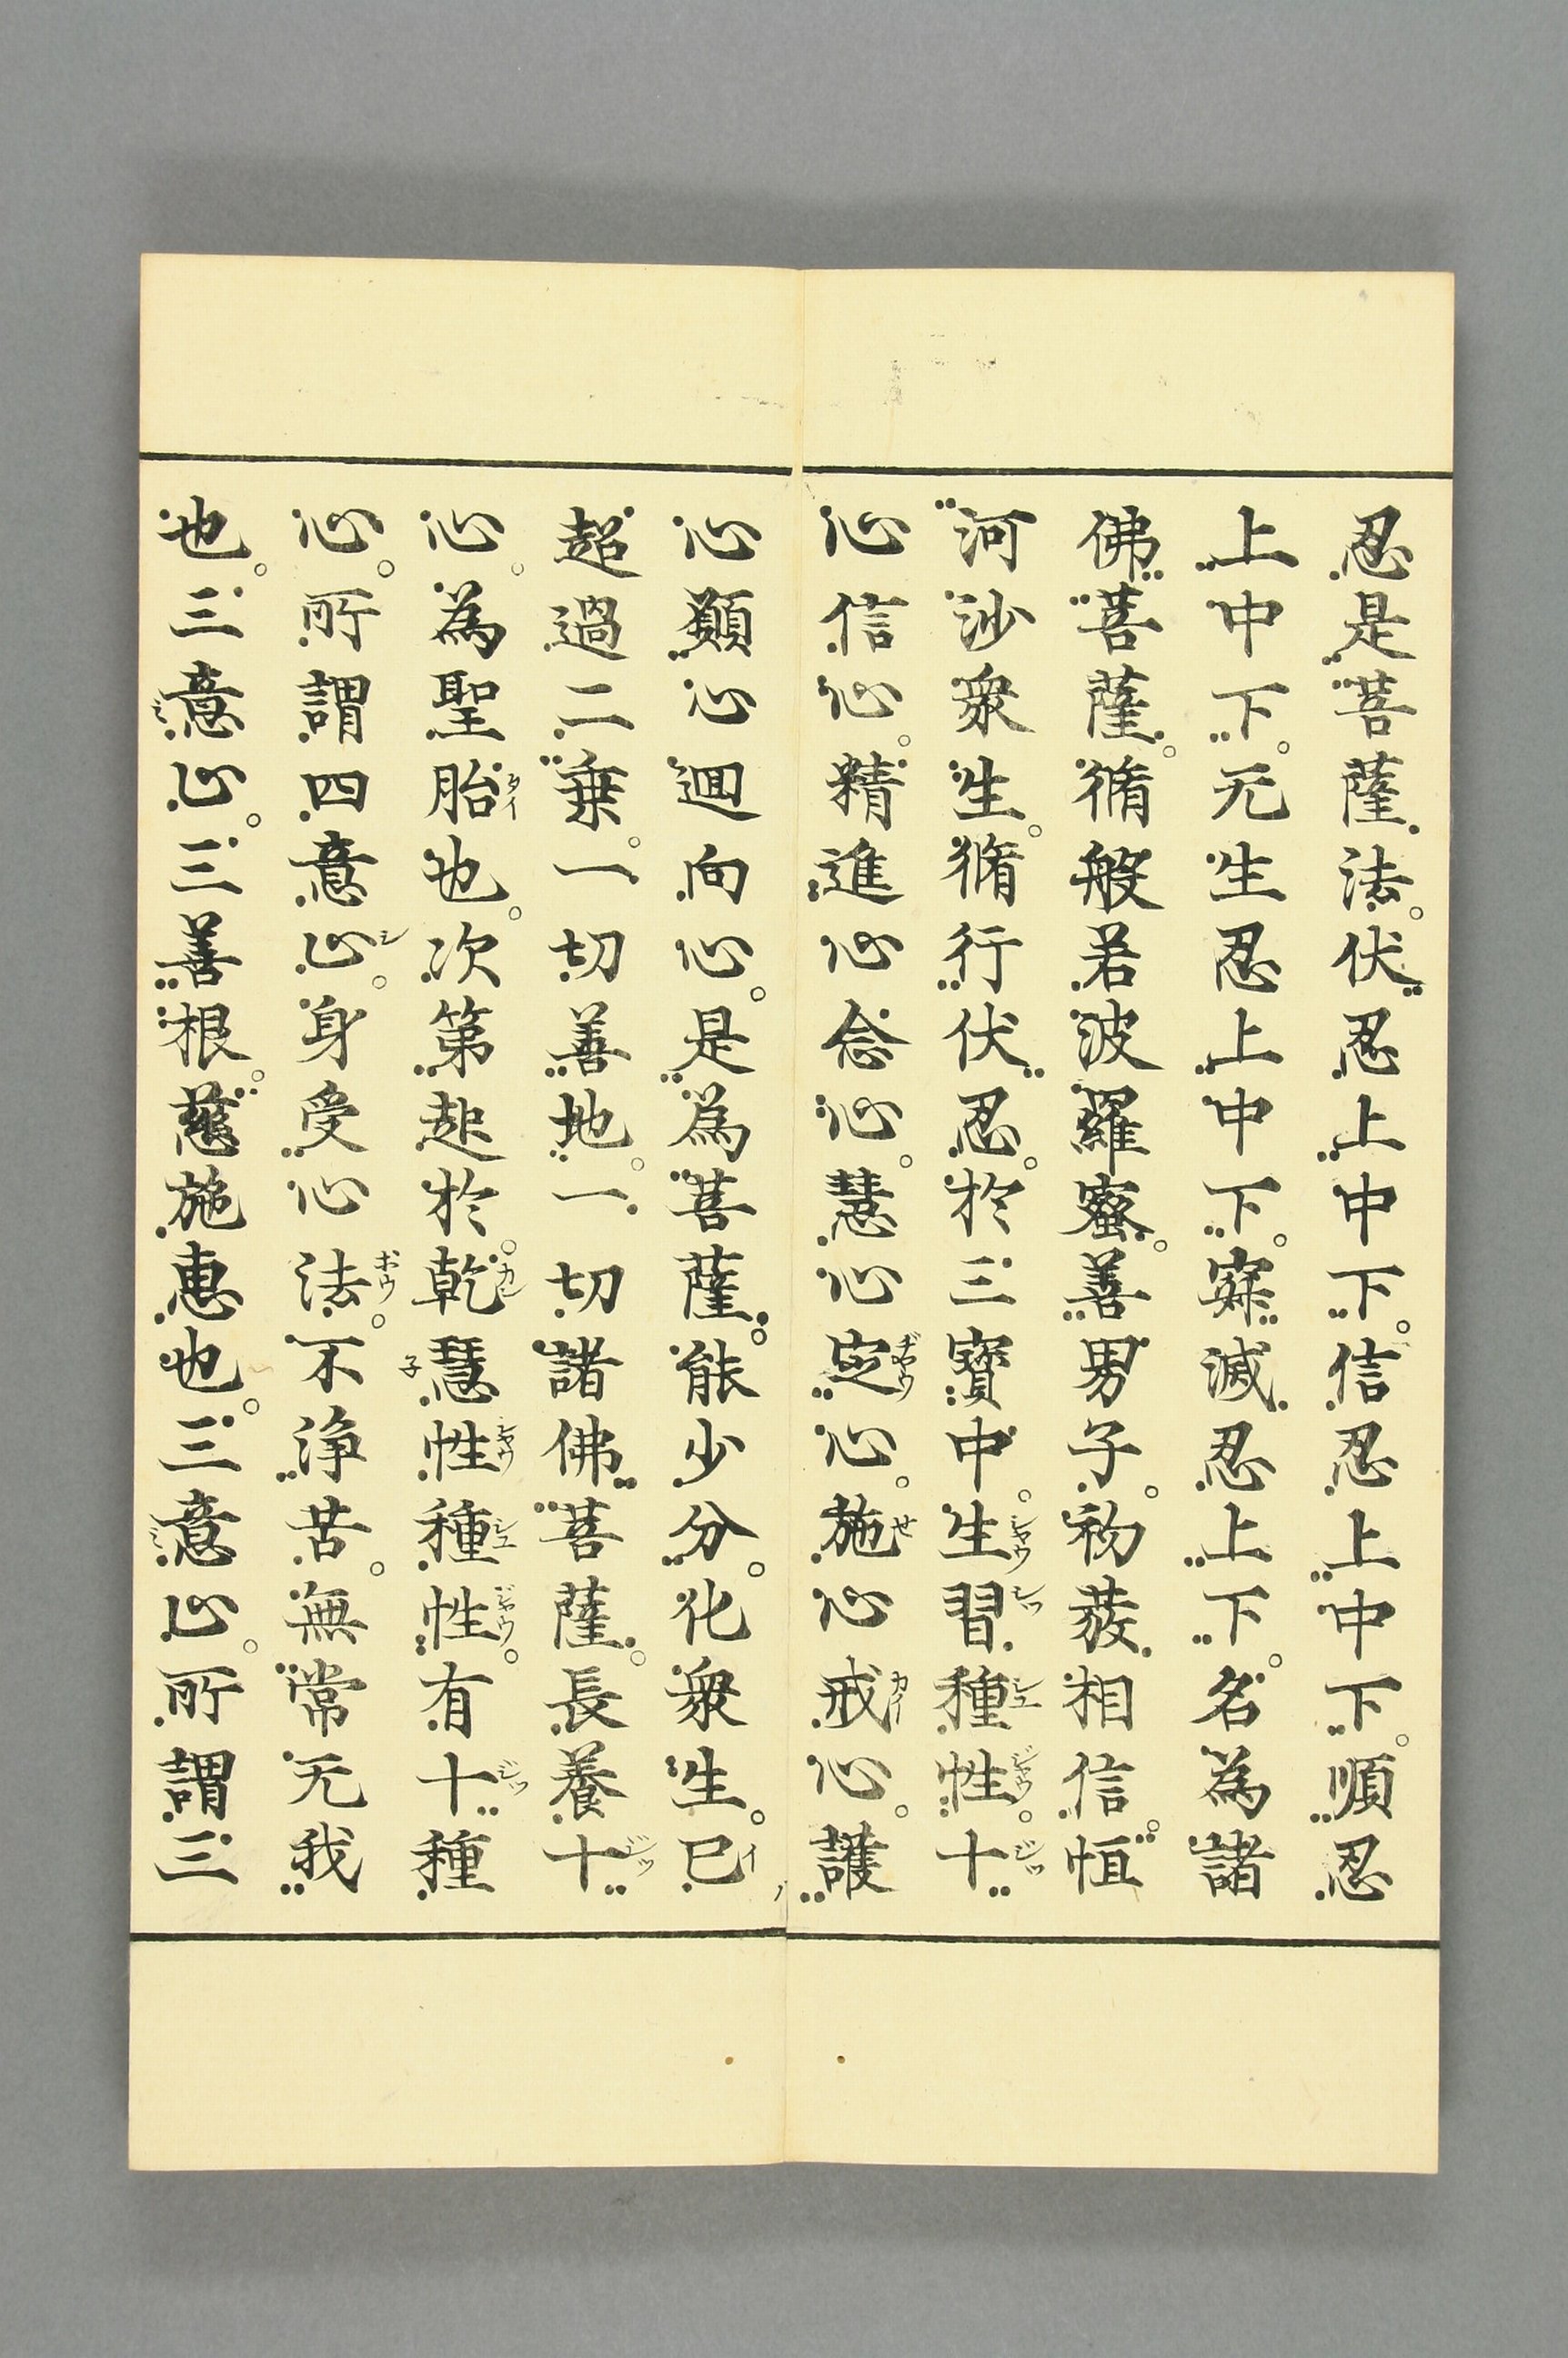 忍是菩薩法。伏忍上中下。信忍上中下。順忍
上中下。无生忍上中下。寂滅忍上下。名為諸
佛菩薩。脩般若波羅蜜。善男子。初發相信。恒
河沙衆生。脩行伏忍。於三寶中。生シヤウ習シツ種シユ性ジヤウ。十ジツ
心信心。精進心念心。慧心定ヂヤウ心。施セ心戒カイ心。護
心願心迴向心。是為菩薩。能少分。化衆生。已イ
超過二乗。一切善地。一切諸佛菩薩。長養十ジツ
心。為聖胎タイ也。次第起於。乾カン慧子性シヤウ種シユ性ジヤウ。有十ジツ種
心。所謂四意止シ。身受心法ホウ。不淨苦。無常无我
也。三意止。三善根。慈施恵也。三意止。所謂三